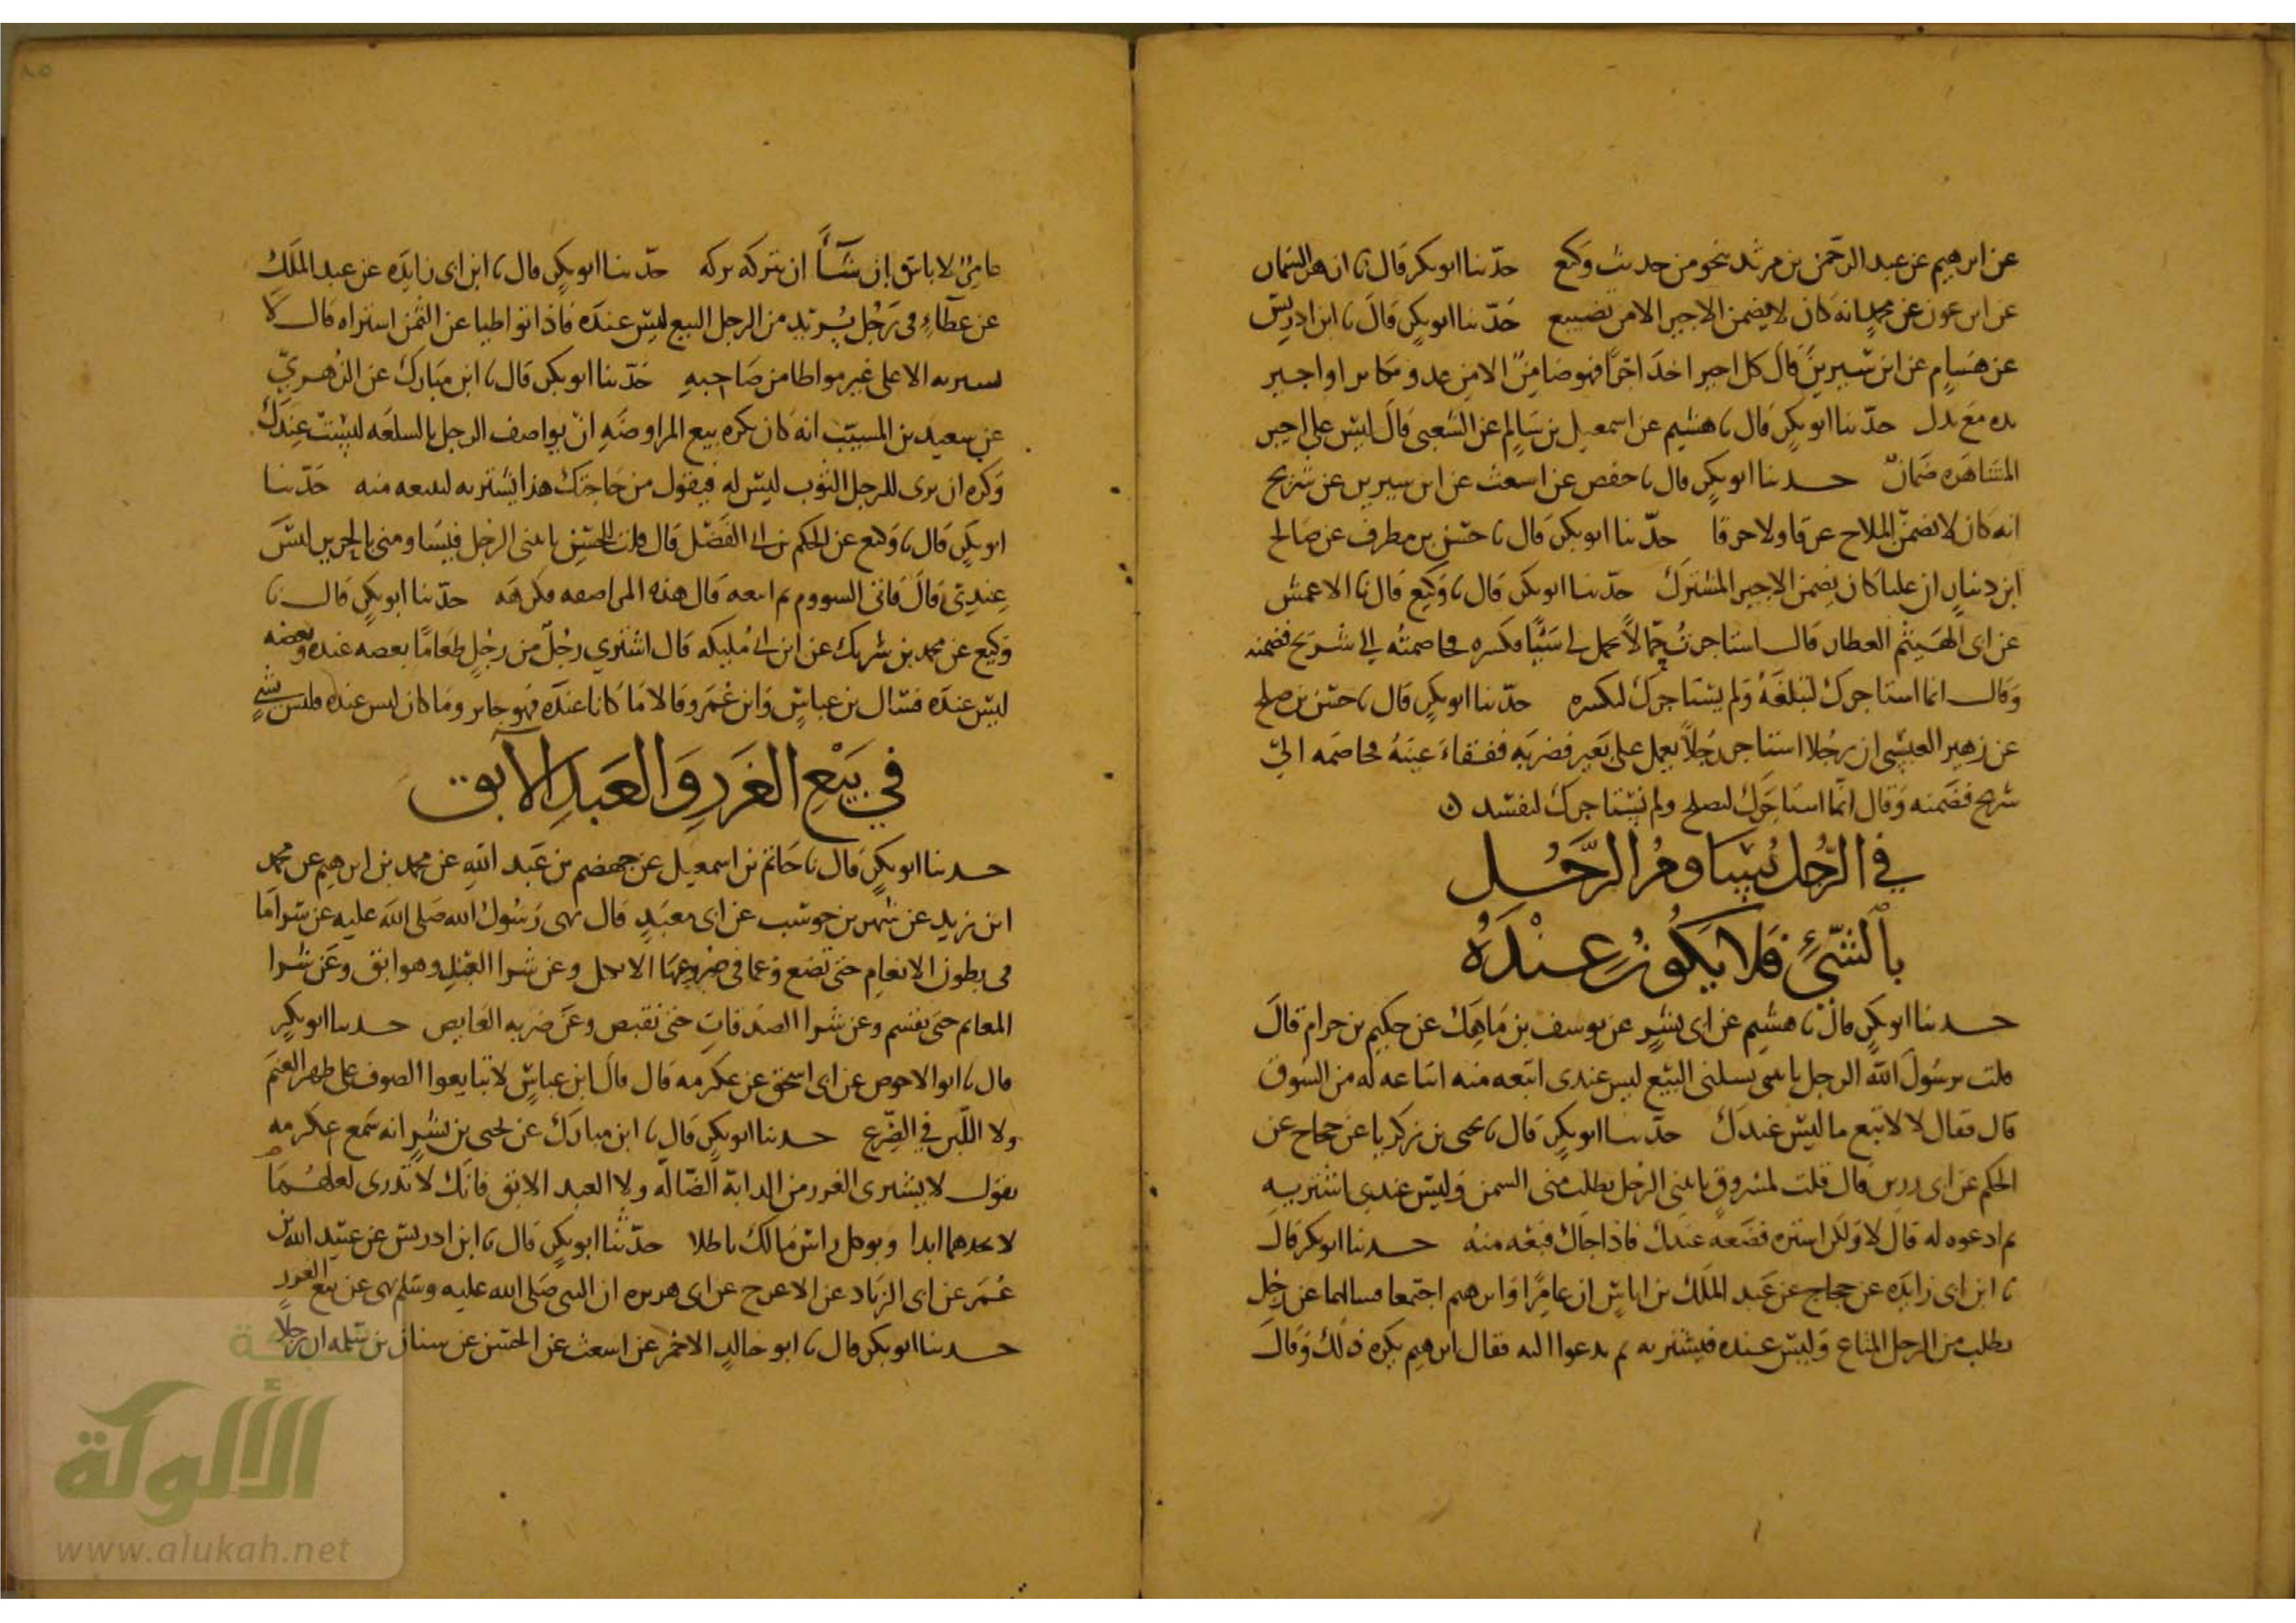 عن ابرهيم عن عبد الرحمن بن مرثد نحو من حديث وكيع حدثنا ابو بكر قال نا ازهر السمان
عن ابن عون عن محمد انه كان لا يضمن الاجير الا من تضييع حدثنا ابو بكر قال نا ابن ادريس
عن هشام عن ابن سيرين قال كل اجير اخذ اجرا فهو ضامن الا من عدو مكابر او اجير
يده مع يدك حدثنا ابو بكر قال نا هشيم عن اسمعيل بن سالم عن الشعبي قال ليس على اجير
المشاهره ضمان حدثنا ابو بكر قال نا حفص عن اشعث عن ابن سيرين عن شريح
انه كان لا يضمن الملاح غرقا ولا حرقا حدثنا ابو بكر قال نا حسن بن مطرف عن صالح
ابن دينار ان عليا كان يضمن الاجير المشترك حدثنا ابو بكر قال نا وكيع قال نا الاعمش
عن ابى الهيثم العطار قال استاجرت حمالا يحمل لى شيئا فكسره فخاصمته الى شريح فضمنه
وقال انما استاجرك لتبلغه ولم يستاجرك لتكسره حدثنا ابو بكر قال نا حسن بن صلح
عن زهير العبسى ان رجلا استاجر رجلا يعمل على بعير فضربه ففقاء عينه فخاصمه الى
شريح فضمنه وقال انما استاجرك لتصلح ولم يستاجرك لتفسد
في الرجل يساوم الرجل
بالشيء فلا يكون عنده
حدثنا ابو بكر قال نا هشيم عن ابى بشر عن يوسف بن ماهك عن حكيم بن حزام قال
قلت يرسول الله الرجل ياتينى يسلنى البيع ليس عندى ابيعه منه ابتاعه له من السوق
قال فقال لا لا تبع ما ليس عندك حدثنا ابو بكر قال نا يحيى بن زكريا عن حجاج عن
الحكم عن ابى رزين قال قلت لمسروق ياتينى الرجل يطلب منى السمن وليس عندى اشتريه
ثم ادعوه له قال لا ولكن اشتره فضعه عندك فاذا جاك فبعه منه حدثنا ابو بكر قال
نا ابن ابى زايده عن حجاج عن عبد الملك بن اياس ان عامرا وابرهيم اجتمعا فسالهما عن رجل
يطلب من الرجل المتاع وليس عنده فيشتريه ثم يدعوا اليه فقال ابرهيم يكره ذلك وقال
عامر لا باس ان شآ ان يتركه تركه حدثنا ابو بكر قال نا ابن ابى زايده عن عبد الملك
عن عطاء فى رجل يريد من الرجل البيع ليس عنده فاذا تواطيا عن الثمن اشتراه قال لا
يشتريه الا على غير مواطا من صاحبه حدثنا ابو بكر قال نا ابن مبارك عن الزهري
عن سعيد بن المسيب انه كان يكره بيع المراوضه ان يواصف الرجل بالسلعه ليست عندك
وكره ان يرى للرجل الثوب ليس له فيقول من حاجتك هذا يشتريه ليبيعه منه حدثنا
ابو بكر قال نا وكيع عن الحكم بن ابى الفضل قال قلت للحسن ياتينى الرجل فيساومنى بالحرير ليس
عندي قال فاتى السووم ثم ابيعه قال هذه المواصفه فكرهه حدثنا ابو بكر قال نا
وكيع عن محمد بن شريك عن ابن ابى مليكه قال اشتري رجل من رجل طعاما بعضه عنده وبعضه
ليس عنده فسال بن عباس وابن عمر وقالا ما كانا عنده فهو جايز وما كان ليس عنده فليس بشي
في بيع الغرر والعبد الآبق
حدثنا ابو بكر قال نا حاتم بن اسمعيل عن جهضم بن عبد الله عن محمد بن ابرهيم عن محمد
ابن زيد عن شهر بن حوشب عن ابى معبد قال نهى رسول الله صلى الله عليه عن شرا ما
فى بطون الانعام حتى تضع وعما فى ضروعها الا بكيل وعن شرا العبد وهو ابق وعن شرا
المغانم حتى يقسم وعن شرا الصدقات حتى تقبض وعن ضربه الغايص حدثنا ابو بكر
قال نا ابو الاحوص عن ابى اسحق عن عكرمه قال قال ابن عباس لا تبايعوا الصوف على ظهر الغنم
ولا اللبن في الضرع حدثنا ابو بكر قال نا ابن مبارك عن يحيى بن بشر انه سمع عكرمه
يقول لا يشترى الغرر من الدابة الضاله ولا العبد الابق فانك لا تدرى لعلهما
لا تجدهما ابدا ويوكل راس مالك باطلا حدثنا ابو بكر قال نا ابن ادريس عن عبيد الله بن
عمر عن ابى الزناد عن الاعرج عن ابى هريره ان النبى صلى الله عليه وسلم نهى عن بيع الغرر
حدثنا ابو بكر قال نا ابو خالد الاحمر عن اشعث عن الحسن عن سنان بن سلمه ان رجلا
الألوكة
www.alukah.net